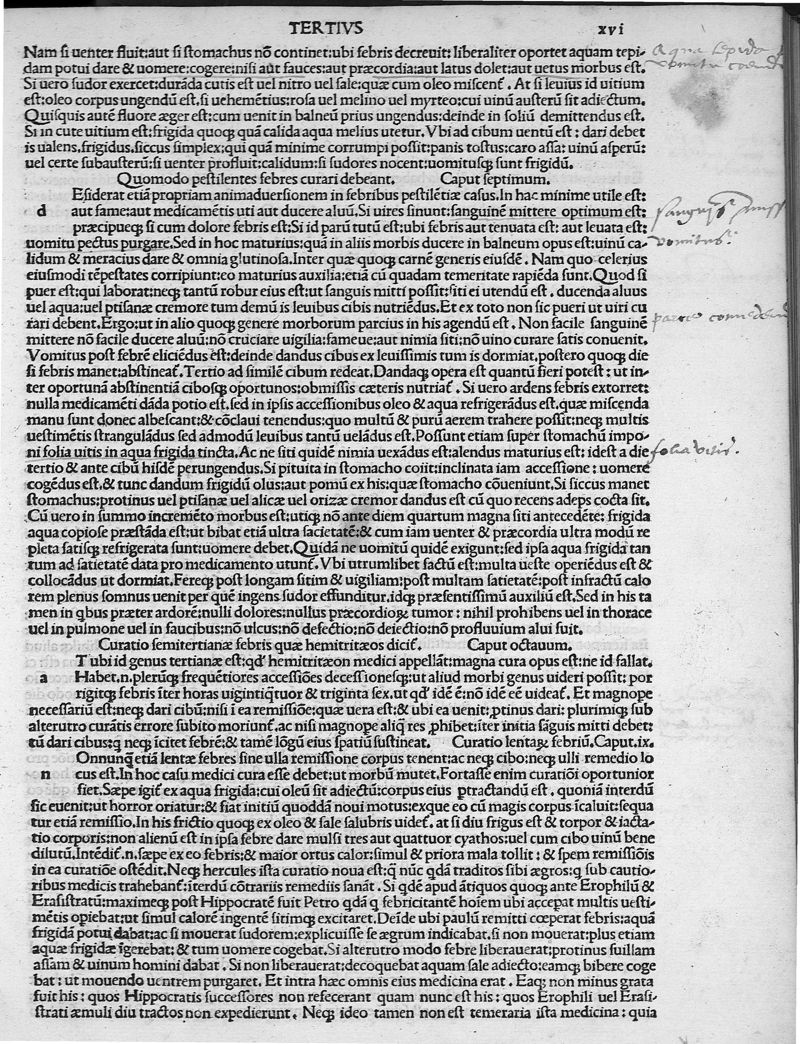 TERTIVS xvi
Nam si uenter fluit:aut si stomachus nō continet:ubi febris decreuit: liberaliter oportet aquam tepi-
dam potui dare & uomere:cogere:nisi aut fauces:aut præcordia:aut latus dolet:aut uetus morbus est.
Si uero sudor exercet:durāda cutis est uel nitro uel sale:quæ cum oleo miscenť. At si leuius id uitium
est:oleo corpus ungendū est,si uehemētius:rosa uel melino uel myrteo:cui uinū austerū sit adiectum.
Quisquis autē fluore æger est:cum uenit in balneū prius ungendus:deinde in soliū demittendus est.
Si in cute uitium est:frigida quoqꝫ quā calida aqua melius utetur. Vbi ad cibum uentū est: dari debet
is ualens,frigidus,siccus simplex:qui quā minime corrumpi possit:panis tostus:caro assa: uinū asperū:
uel certe subausterū:si uenter profluit:calidum:si sudores nocent:uomitusqꝫ sunt frigidū.
Quomodo pestilentes febres curari debeant. Caput septimum.
Esiderat etiā propriam animaduersionem in febribus pestilētiæ casus.In hac minime utile est:
d aut fame:aut medicamētis uti aut ducere aluū.Si uires sinunt:sanguinē mittere optimum est:
præcipueqꝫ si cum dolore febris est:Si id parū tutū est:ubi febris aut tenuata est: aut leuata est:
uomitu pectus purgare.Sed in hoc maturius:quā in aliis morbis ducere in balneum opus est:uinū ca-
lidum & meracius dare & omnia glutinosa.Inter quæ quoqꝫ carnē generis eiusdē. Nam quo celerius
eiusmodi tēpestates corripiunt:eo maturius auxilia:etiā cū quadam temeritate rapiēda sunt.Quod si
puer est:qui laborat:neqꝫ tantū robur eius est:ut sanguis mitti possit:siti ei utendū est. ducenda aluus
uel aqua:uel ptisanæ cremore tum demū is leuibus cibis nutriēdus.Et ex toto non sic pueri ut uiri cu
rari debent.Ergo:ut in alio quoqꝫ genere morborum parcius in his agendū est. Non facile sanguinē
mittere nō facile ducere aluū:nō cruciare uigilia:fameue:aut nimia siti:nō uino curare satis conuenit.
Vomitus post febrē eliciēdus est:deinde dandus cibus ex leuissimis tum is dormiat,postero quoqꝫ die
si febris manet:abstineať. Tertio ad similē cibum redeat.Dandaqꝫ opera est quantū fieri potest: ut in-
ter oportunā abstinentiā cibosqꝫ oportunos:obmissis cæteris nutriať. Si uero ardens febris extorret:
nulla medicamēti dāda potio est.sed in ipsis accessionibus oleo & aqua refrigerādus est.quæ miscenda
manu sunt donec albescant:& cōclaui tenendus:quo multū & purū aerem trahere possit:neqꝫ multis
uestimētis strangulādus sed admodū leuibus tantū uelādus est.Possunt etiam super stomachū impo-
ni folia uitis in aqua frigida tincta.Ac ne siti quidē nimia uexādus est:alendus maturius est: idest a die
tertio & ante cibū hisdē perungendus.Si pituita in stomacho coiit:inclinata iam accessione: uomere
cogēdus est,& tunc dandum frigidū olus:aut pomū ex his:quæ stomacho cōueniunt.Si siccus manet
stomachus:protinus uel ptisanæ uel alicæ uel orizæ cremor dandus est cū quo recens adeps cocta sit.
Cū uero in summo incremēto morbus est:utiqꝫ nō ante diem quartum magna siti antecedēte: frigida
aqua copiose præstāda est:ut bibat etiā ultra sacietatē:& cum iam uenter & præcordia ultra modū re
pleta satisqꝫ refrigerata sunt:uomere debet.Quidā ne uomitū quidē exigunt:sed ipsa aqua frigida tan
tum ad satietatē data pro medicamento utunť. Vbi utrumlibet factū est:multa ueste operiēdus est &
collocādus ut dormiat.Fereqꝫ post longam sitim & uigiliam:post multam satietatē:post infractū calo
rem plenus somnus uenit per quē ingens sudor effunditur.idqꝫ præsentissimū auxiliū est.Sed in his ta
men in qbus præter ardorē:nulli dolores:nullus præcordioꝝ tumor: nihil prohibens uel in thorace
uel in pulmone uel in faucibus:nō ulcus:nō defectio:nō deiectio:nō profluuium alui fuit.
Curatio semitertianæ febris quæ hemitritæos diciť. Caput octauum.
T ubi id genus tertianæ est:qd' hemitritæon medici appellāt:magna cura opus est:ne id fallat.
a Habet.n.plerūqꝫ frequētiores accessiōes decessionesqꝫ:ut aliud morbi genus uideri possit: por
rigitqꝫ febris īter horas uigintiqtuor & triginta sex.ut qd' idē ē:nō idē eē uideať. Et magnope
necessariū est:neqꝫ dari cibū:nisi ī ea remissiōe:quæ uera est:& ubi ea uenit:ptinus dari: plurimiqꝫ sub
alterutro curātis errore subito moriunť.ac nisi magnope aliq̄ res phibet:īter initia sāguis mitti debet:
tū dari cibus:q neqꝫ īcitet febrē:& tamē lōgū eius spatiū sustineat. Curatio lentaꝝ febriū.Caput.ix.
Onnunq̄ etiā lentæ febres sine ulla remissione corpus tenent:ac neqꝫ cibo:neqꝫ ulli remedio lo
n cus est.In hoc casu medici cura esse debet:ut morbū mutet.Fortasse enim curatiōi oportunior
fiet.Sæpe igiť ex aqua frigida:cui oleū sit adiectū:corpus eius ptractandū est. quoniā interdū
sic euenit:ut horror oriatur:& fiat initiū quoddā noui motus:exque eo cū magis corpus īcaluit:sequa
tur etiā remissio.In his frictio quoqꝫ ex oleo & sale salubris uideť. at si diu frigus est & torpor & iacta-
tio corporis:non alienū est in ipsa febre dare mulsi tres aut quattuor cyathos:uel cum cibo uinū bene
dilutū.Intēdiť.n.sæpe ex eo febris:& maior ortus calor:simul & priora mala tollit: & spem remissiōis
in ea curatiōe ostēdit.Neqꝫ hercules ista curatio noua est:q̄ nūc qdā traditos sibi ægros:q sub cautio-
ribus medicis trahebanť:īterdū cōtrariis remediis sanāt. Si qdē apud ātiquos quoqꝫ ante Erophilū &
Erasistratū:maximeqꝫ post Hippocratē fuit Petro qdā q febricitantē hoīem ubi accepat multis uesti-
mētis opiebat:ut simul calorē ingentē sitimqꝫ excitaret.Deīde ubi paulū remitti cœperat febris:aquā
frigidā potui dabat:ac si mouerat sudorem:explicuisse se ægrum indicabat.si non mouerat:plus etiam
aquæ frigidæ īgerebat:& tum uomere cogebat.Si alterutro modo febre liberauerat:protinus suillam
assam & uinum homini dabat. Si non liberauerat:decoquebat aquam sale adiecto:eamqꝫ bibere coge
bat: ut mouendo uentrem purgaret. Et intra hæc omnis eius medicina erat. Eaqꝫ non minus grata
fuit his: quos Hippocratis successores non refecerant quam nunc est his: quos Erophili uel Erasi-
strati æmuli diu tractos non expedierunt. Neqꝫ ideo tamen non est temeraria ista medicina: quia
Aqua tepida
vomitus
folia vitis.